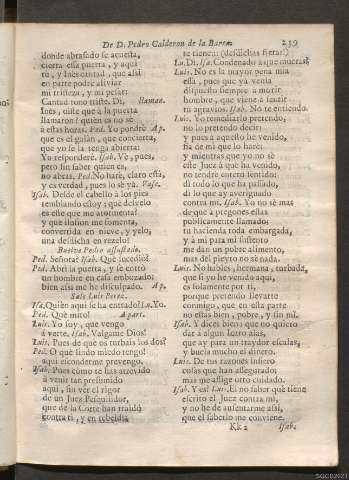 De D. Pedro Calderon de la Barca. 259
donde abrasado se acuesta,
cierra essa puerta, y aqui
tù, y Inès cantad, que assi
en parte podrè aliviar
mi tristeza, y mi pesar.
Cantad tono triste. Di, llaman.
Inès, oiste que à la puerta
llamaron? quien es no sè
à estas horas. Ped. Yo pondrè Ap.
que es el galàn, que concierta,
que yo se la tenga abierta:
Yo responderè. Isab. Vè, pues,
pero sin saber quien es,
no abras. Ped. No harè, claro està,
y es verdad, pues lo sè yà. Vase.
Isab. Desde el cabello à los pies
temblando estoy; què desvelo
es este que me atormenta?
y que ilusion me fomenta,
convertida en nieve, y yelo,
una desdicha en rezelo?
Buelve Pedro assustado.
Ped. Señora? Isab. Què sucediò?
Ped. Abri la puerta, y se entrò
un hombre en casa embozado:
bien assi me he disculpado. Ap.
Sale Luis Perez.
Isa. Quien aqui se ha entrado? Lu. Yo.
Ped. Què miro! Aparte.
Luis. Yo soy, que vengo
à verte. Isab. Valgame Dios!
Luis. Pues de què os turbais los dos?
Ped. O què lindo miedo tengo!
aqui esconderme prevengo.
Isab. Pues còmo te has atrevido
à venir tan presumido
aqui, sin ver el rigor
de un Juez Pesquisidor,
que de la Corte han traido
contra ti, y en rebeldia
te tienen: (desdichas fieras!)
Lu. Di. Isa. Condenado à que mueras.
Luis. No es la mayor pena mia
essa, pues que yà venia
dispuesto siempre à morir
hombre, que viene à sentir
tu agravios. Isab. No te entiendo.
Luis. Yo remediarlo pretendo,
no lo pretendo decir;
y pues à aquesto he venido,
fia de mi que lo harè;
y mientras que yo no sè
este Juez à què ha venido,
no tendrè entero sentido:
di todo lo que ha passado,
di lo que ay averiguado
contra mi. Isab. Yo no sè mas
de que à pregones estàs
publicamente llamado:
tu hacienda toda embargada,
y à mi para mi sustento
me dàn un pobre alimento,
mas del pleyto no sè nada.
Luis. No hables, hermana, turbada,
que si yo he venido aqui,
es solamente por ti,
porque pretendo llevarte
conmigo, que en esta parte
no estàs bien, pobre, y sin mi.
Isab. Y dices bien; que no quiero
dàr à algun Icaro alas,
que ay para un traydor escalas,
y hecha mucho el dinero.
Luis. De tus razones infiero
cosas que han assegurado;
mas que aflige otro cuidado.
Isab. Y es? Luis. El no saber què tiene
escrito el Juez contra mi,
y no he de ausentarme assi,
que el saberlo me conviene.
Kk 2 Isab.
SGC02021